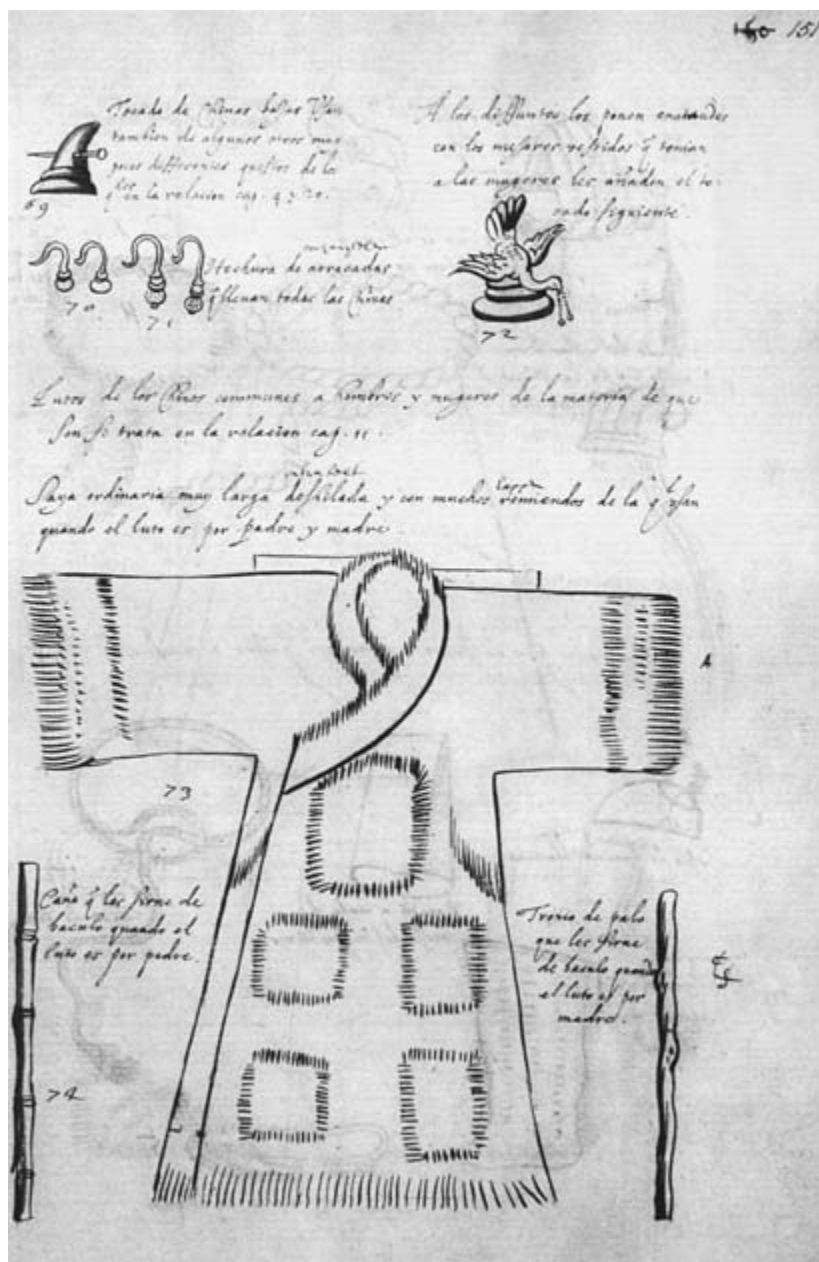 150 151
Tocado de Chinas bajas Usan
tambien de algunos otros muy
pocos differentes puestos de los
q en la relacion cap. 4. y 20.
69
A los diffuntos los ponen enataudes
con los mesmos vestidos q tenian
a las mugeres les añaden el to-
cado siguiente.
70
71
Hechura de arracadas
q lleuan todas las Chinas
72
Lutos de los Chinos communes a hombres y mugeres de la materia de que
son se trata en la relacion cap. 11.
Saya ordinaria muy larga deshilada y con muchos remiendos de la q usan
quando el luto es por padre y madre.
A
73
Caña q les sirue de
baculo quando el
luto es por padre.
74
Trozo de palo
que les sirue
de baculo quando
el luto es por
madre.